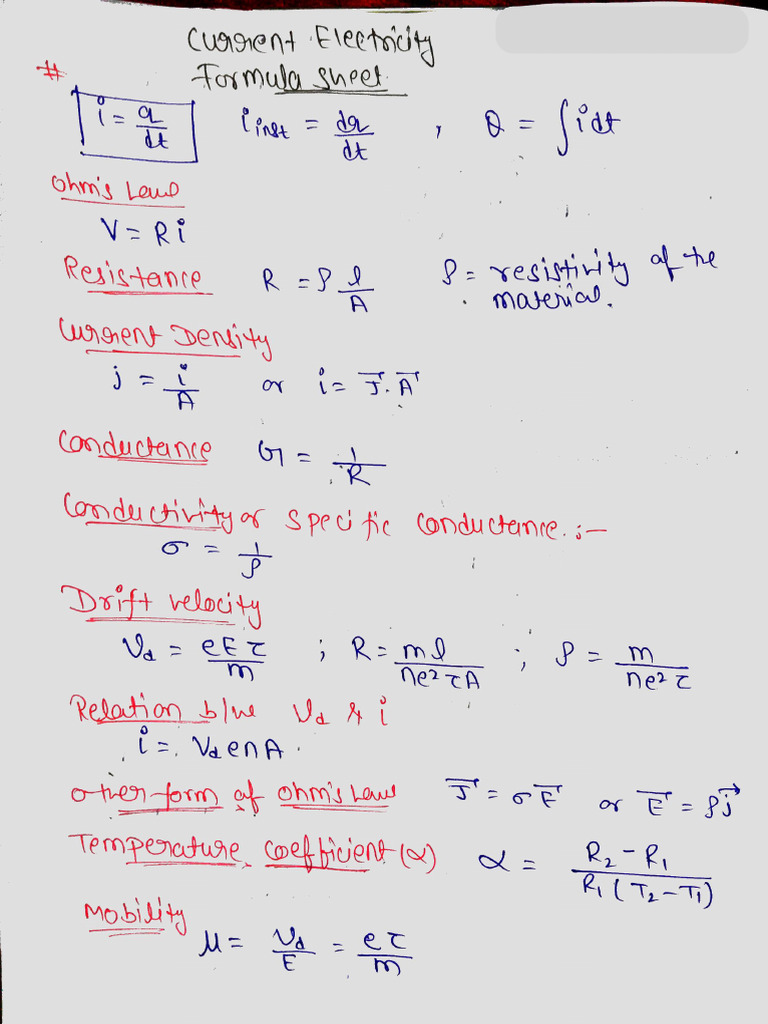 Current Electricity
# Formula Sheet
i = q/dt    i inst = dq/dt , Q = ∫idt
Ohm's Law
V = Ri
Resistance R = ρ l/A ρ = resistivity of the
material.
Current Density
j = i/A or i = J⃗.A⃗
Conductance G = 1/R
Conductivity or specific conductance :-
σ = 1/ρ
Drift velocity
Vd = eEτ/m ; R = ml/ne²τA ; ρ = m/ne²τ
Relation b/w Vd & i
i = VdenA.
other form of ohm's Law J⃗ = σE⃗ or E⃗ = ρj⃗
Temperature coefficient (α) α = R₂-R₁/R₁(T₂-T₁)
Mobility
μ = Vd/E = eτ/m